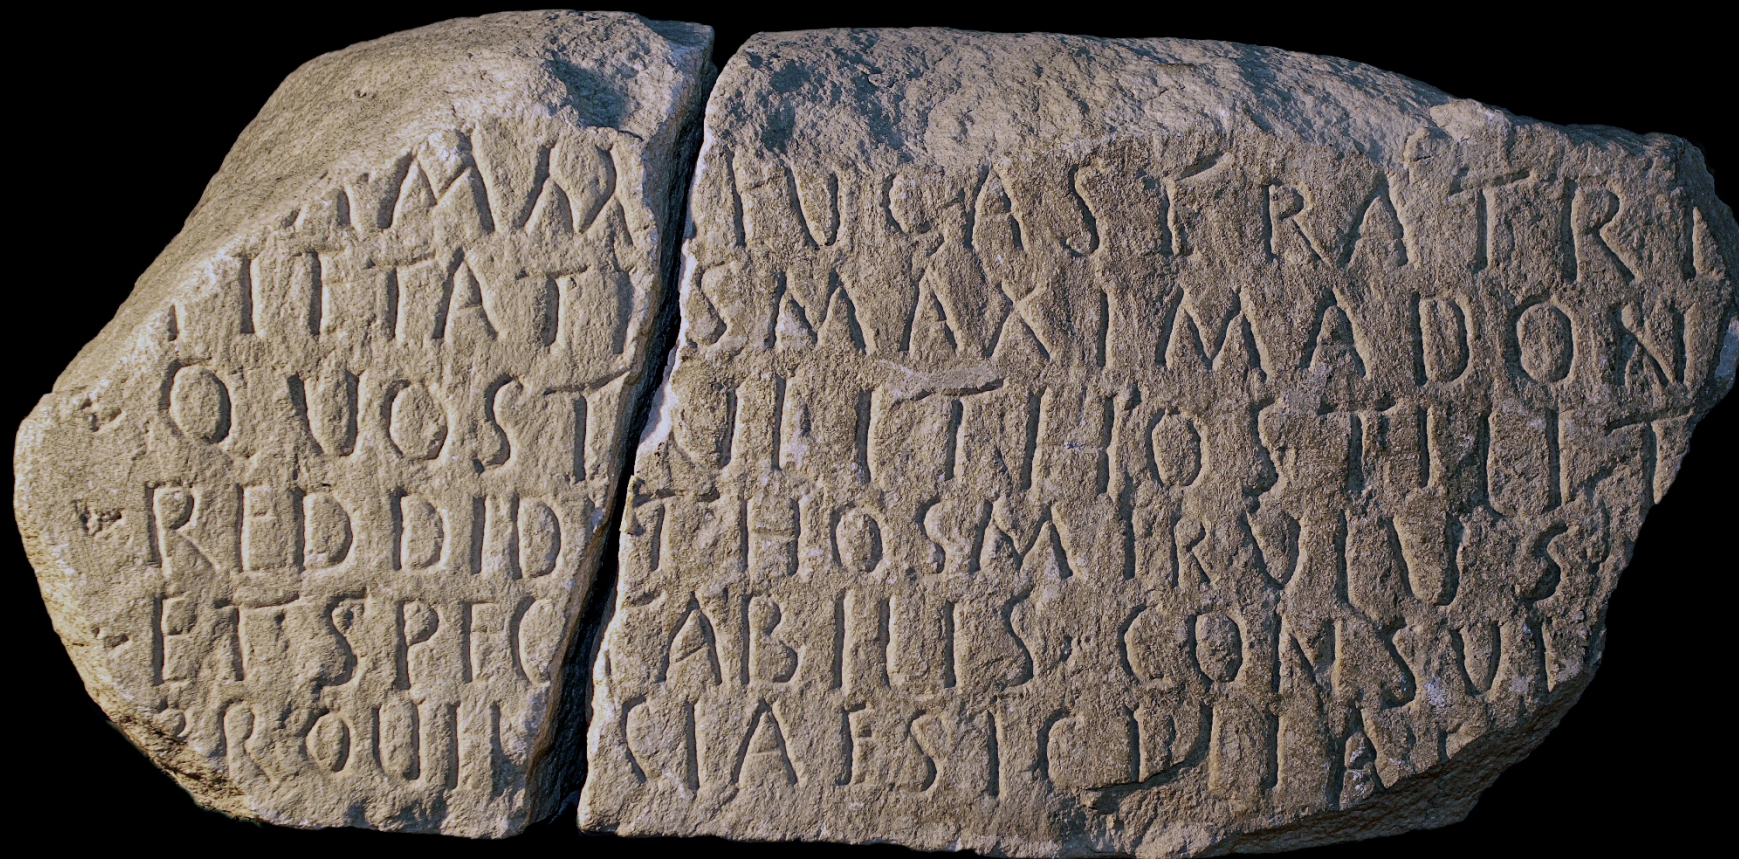 AUCAS FRATRI
TATIS MAXIMA DON
QUOS TULIT HOSTILIT
REDDIDIT HOS MIRVIUUS
ET SPECTABILIS · CONSUL
PROUINCIAE